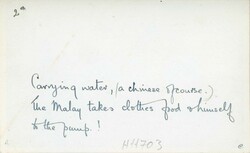 2a
Carrying water, (a chinese of course.)
The Malay takes clothes food & himself
to the pump!
H4703